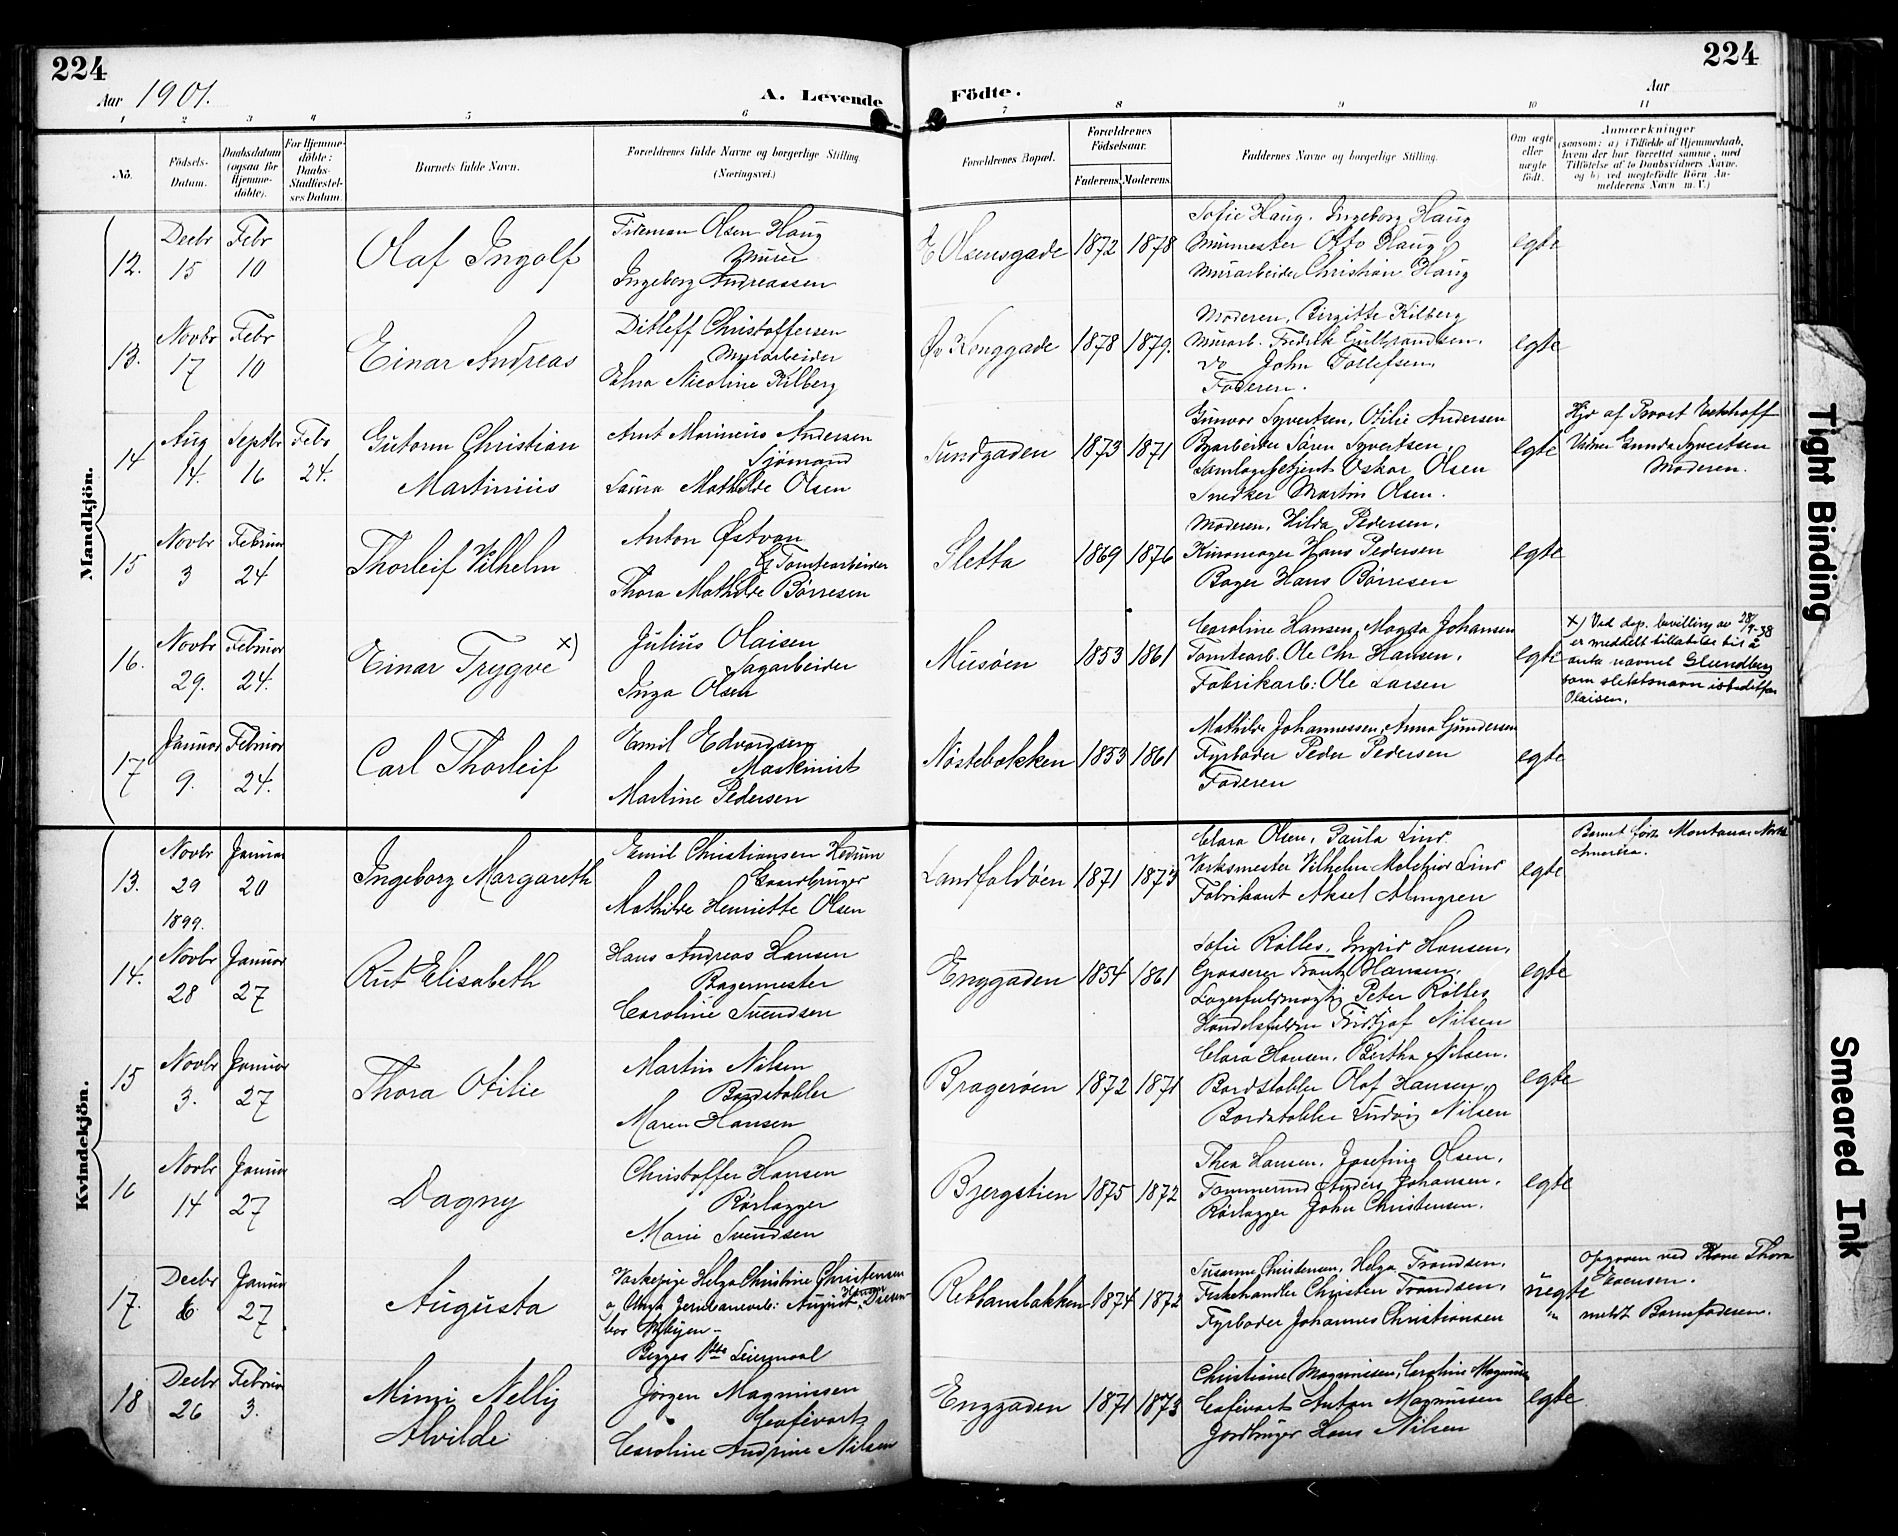 224
224
Aar 1901.
A. Levende
Födte.
Aar
1 2 3 4 5 6 7 8 9 10 11
No.
Födsels-
Datum.
Daabsdatum
(ogsaa for
Hjemme-
döbte).
For Hjemme-
döbte:
Daabs-
Stadfæstel-
ses Datum.
Barnets fulde Navn.
Forældrenes fulde Navne og borgerlige Stilling.
(Næringsvei.)
Forældrenes Bopæl.
Forældrenes
Födselsaar.
Faderens. Moderens.
Faddernes Navne og borgerlige Stilling.
Om ægte
eller
uægte
födt.
Anmærkninger
(saasom: a) i Tilfælde af Hjemmedaab,
hvem der har forrettet samme, med
Tilföielse af to Daabsvidners Navne,
og b) ved uægtefödte Börn An-
melderens Navn m. V.)
Mandkjön.
12.
Decbr
15
Febr
10
Olaf Ingolf
Olsen Haug
Murer
Ingeborg Andreassen
E Olsensgade
1872
1878
Sofie Haug. Ingeborg Haug
Murmester Otto Haug
Murarbeider Christian Haug
egte
13.
Novbr
17
Febr
10
Einar Andreas
Ditleff Christoffersen
Murarbeider
Nicoline Kilberg
Øv Konggade
1878
1879.
Moderen, Birgitte Kilberg
Murarb. Fredrik Gulbrandsen.
do John Tollefsen.
Faderen.
egte
14
Aug
14.
Septbr
16
Febr
24.
Gutorm Christian
Martinius
Arnt Marinius Andersen
Sjömand
Laura Mathilde Olsen
Sundgaden
1873
1871
Gunvor Syvertsen, Otilie Andersen
Byarbeider Sören Syvertsen,
Samlagsbetjent Oskar Olsen
Snedker Martin Olsen.
egte
Hjd af Provst
Vidner Gunda Syvertsen
Moderen.
15
Novbr
3
Februar
24
Thorleif Vilhelm
Anton Østvan
Tomtearbeider
Thora Mathilde Börresen
Sletta
1869
1876
Moderen, Hilda Pedersen.
Hans Pedersen
Bager Hans Börresen
egte
16.
Novbr
29.
Februar
24.
Einar Trygve x)
Julius Olaisen
Sagarbeider
Inga Olsen
Musöen
1853
1861
Caroline Hansen, Magda Johansen
Tomtearb. Ole Chr Hansen.
Fabrikarb: Ole Larsen
egte
x) Ved dep. bevilling av 28/9-38
er meddelt tillatelse til å
anta navnet Glundberg
som slektsnavn istedetfor
Olaisen.
17
Januar
9.
Februar
24.
Carl Thorleif
Emil Edvardsen
Maskinist
Martine Pedersen
Nöstebakken
1853
1861
Mathilde Johannessen, Anna Gundersen
Fyrböder Peder Pedersen
Faderen
egte
Kvindekjön.
13.
Novbr
29
1899.
Januar
20
Ingeborg Margareth
Emil Christiansen Hedum
Gaardbruger
Mathilde Henriette Olsen
Landfaldöen
1871
1873
Clara Olsen, Paula Lind
Værksmester Vilhelm Melchior Lind
Fabrikant Aksel Almgren
egte
Barnet født Montana Nord
Amerika.
14.
Novbr
28
Januar
27
Rut Elisabeth
Hans Andreas Hansen
Bagermester
Caroline Svendsen
Enggaden
1854
1861
Sofie Rolles, Ingrid Hansen,
Grosserer Frantz Hansen.
Lagerfuldmægtig Peter Rolles
Fridtjof Nilsen
egte
15
Novbr
3.
Januar
27
Thora Otilie
Martin Nilsen
Bordstabler
Maren Hansen
Bragerøen
1872
1871
Clara Hansen, Bertha Nilsen.
Bordstabler Olaf Hansen,
Bordstabler Ludvig Nilsen
egte
16
Novbr
14
Januar
27
Dagny
Christoffer Hansen
Rörlægger
Marie Svendsen
Bjergstien
1875
1872
Thea Hansen, Josefine Olsen,
Tømmermd Anders Johansen.
Rörlægger John Christensen.
egte
17.
Decbr
6
Januar
27
Augusta
Vaskepige Helga Christine Christensen
August Hansen
Begges 1ste Leiermaal
1874
1872
Susanne Christensen, Helga Trondsen.
Fiskehandler Christen Trondsen,
Fyrböder Johannes Christiansen
uegte
Opgaven ved Kone Thora
meldt Barnefaderen.
18
Decbr
26
Februar
3.
Mimi Nelly
Alvilde
Jörgen Magnussen
Cafévært
Caroline Andrine Nilsen
Enggaden
1871
1873
Christiane Magnussen, Caroline Magnussen
Cafévært Anton Magnussen
Jordbruger Hans Nilsen
egte
Tight Binding
Smeared Ink